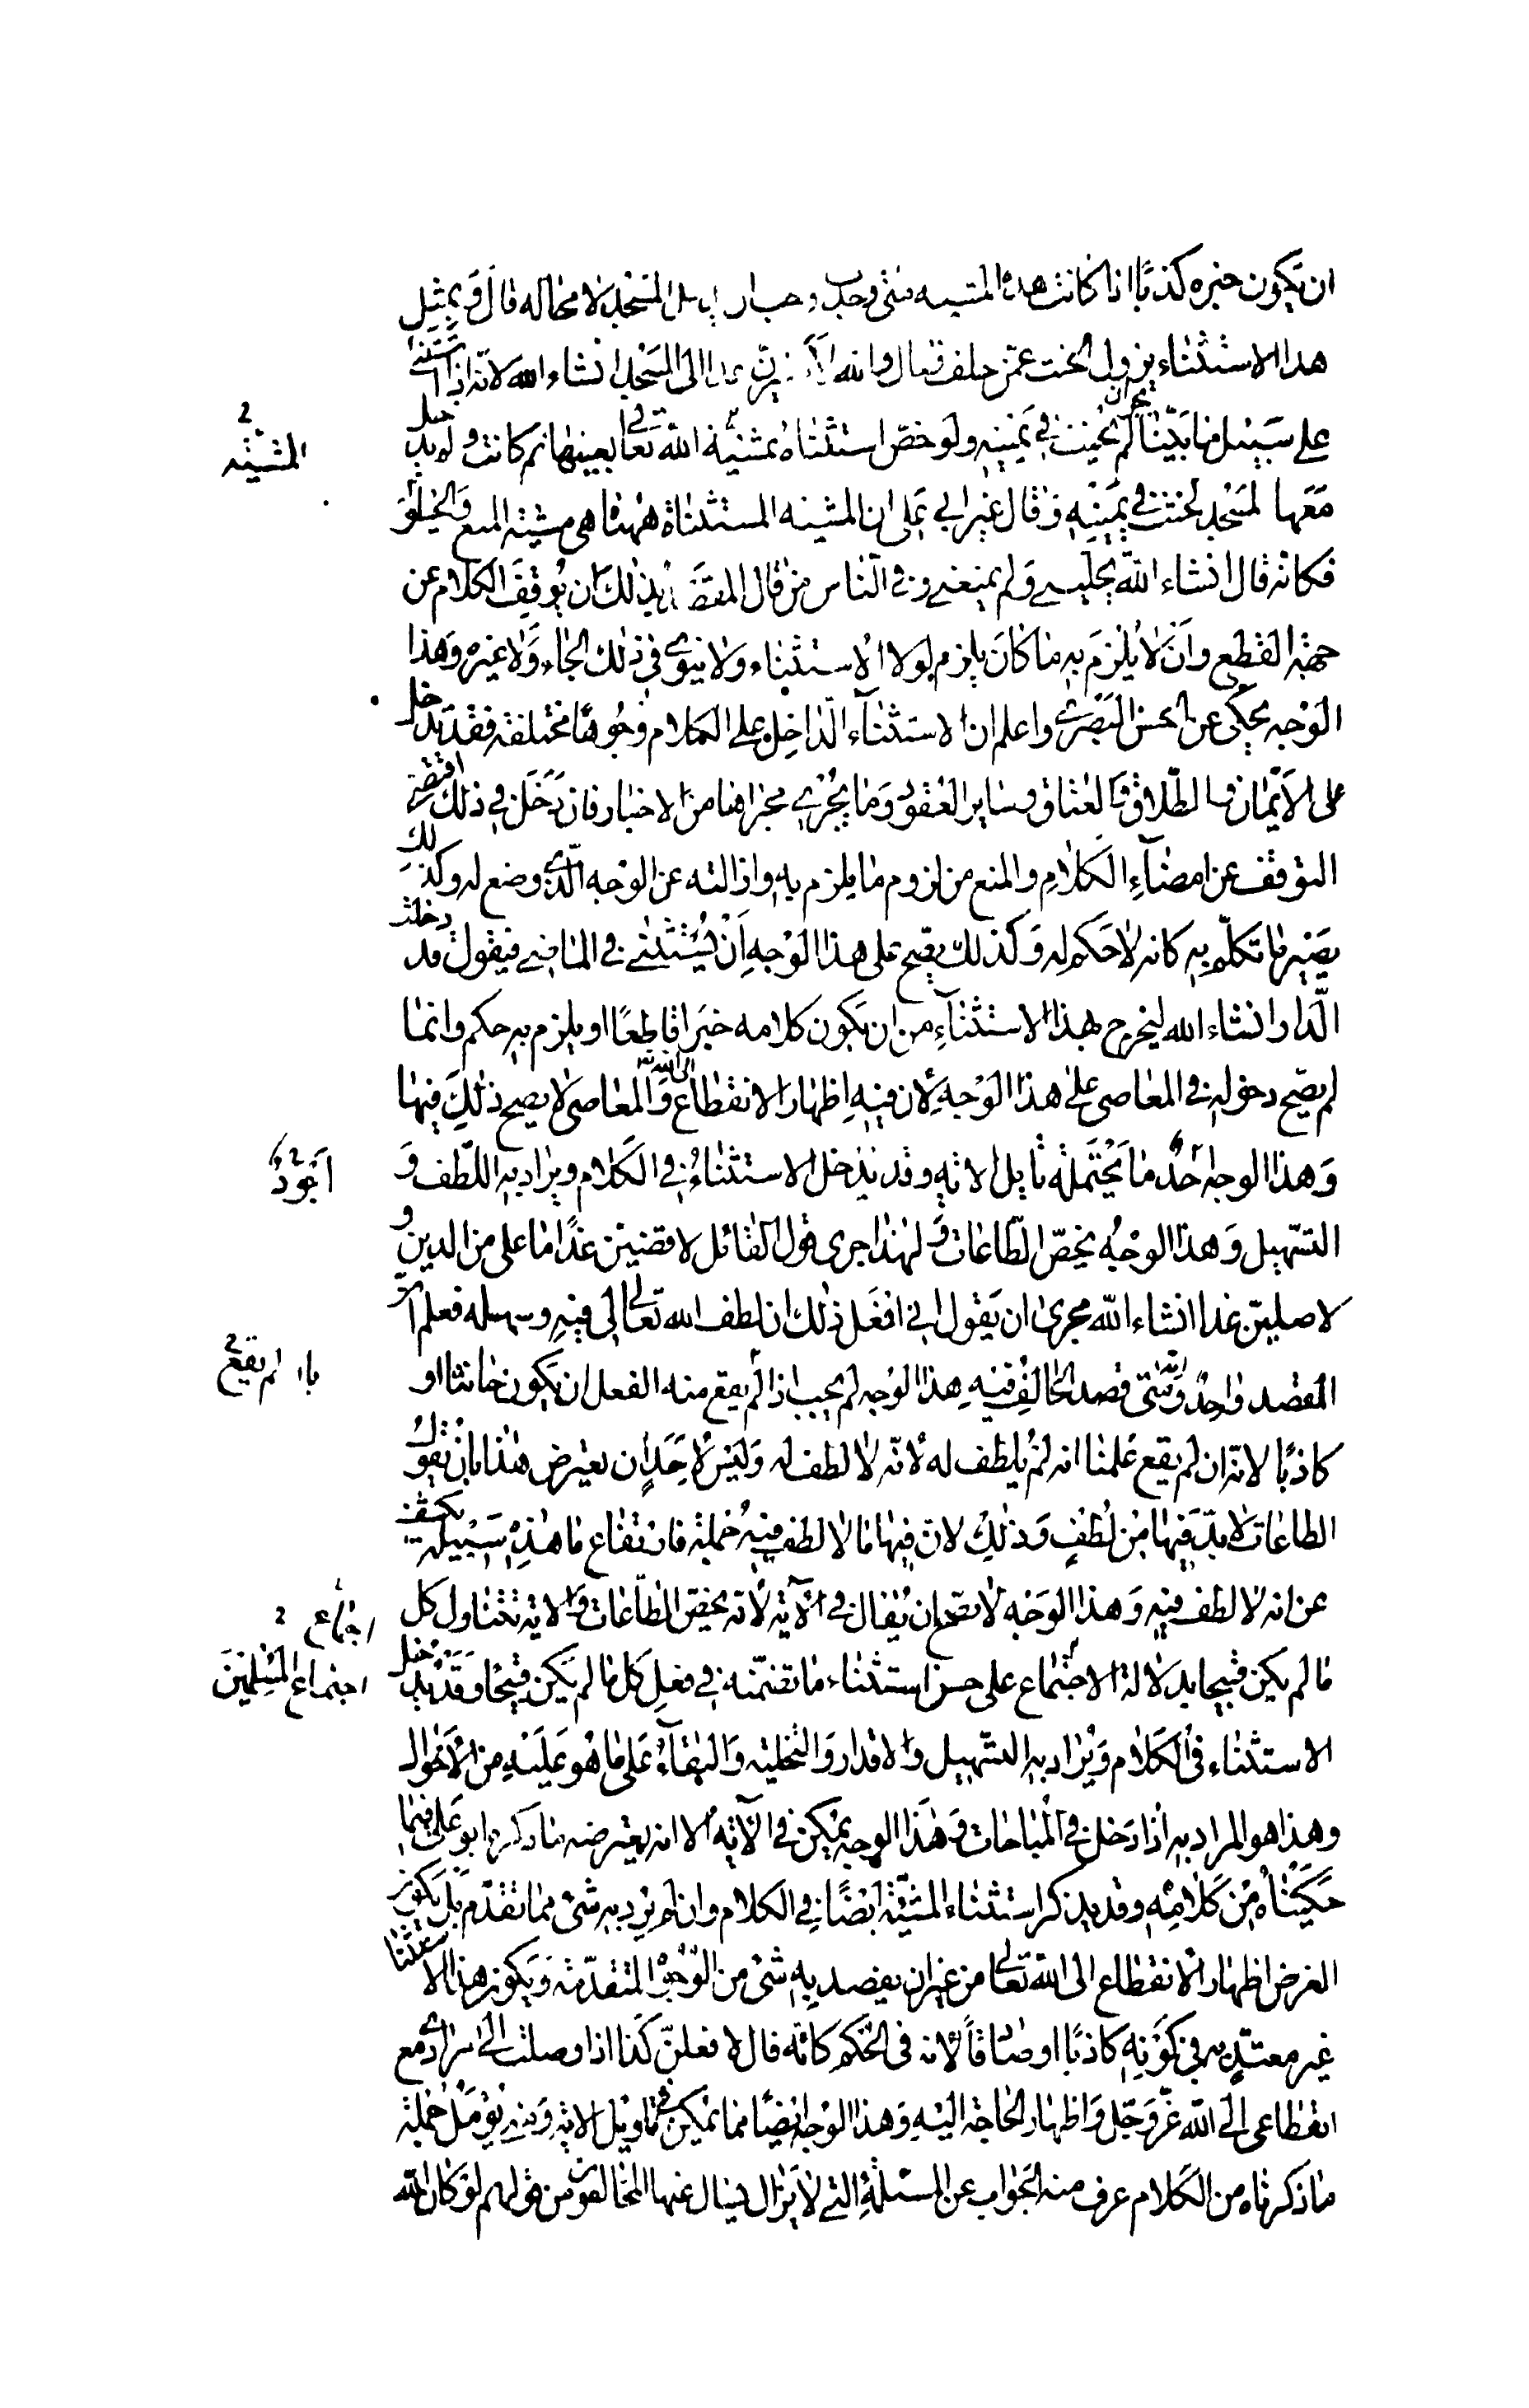 ان يكون خبره كذبا اذا كانت هذه المشيه متى وجدت وجب ان يدخل المسجد لا محاله قال و بمثل
هذا الاستثناء يزول الحنث عمن حلف فقال والله لاصيرن غدا الى المسجد انشاء الله لانه اذا استثنى
على سبيل ما بيّنا لم يجز ان يحنث في يمينه ولو خصّ استثناه بمشيّة الله تعالى بعينها ثم كانت و لم يدخل
المشيّه
معها المسجد لحنث في يمينه و قال غير ابي على ان المشيه المستثناة ههنا هى مشية المنع و الحيلولة
فكانه قال انشاء الله يخليني و لم يمنعنى و فى الناس من قال المقصد بذلك ان يوقف الكلام عن
جهة القطع و ان لا يلزم به ما كان يلزم لولا الاستثناء ولا ينوى في ذلك الجاء ولا غيره وهذا
الوجه يحكى عن الحسن البصرى واعلم ان الاستثناء الداخل على الكلام وجوها مختلفة فقد يدخل
على الايمان و الطلاق و العتاق و ساير العقود و ما يجرى مجراها من الاخبار فاذا دخل في ذلك اقتضى
التوقف عن امضاء الكلام والمنع من لزوم ما يلزم به و ازالته عن الوجه الذى وضع له وكذلك
يصير ما تكلم به كانه لا حكم له و كذلك يصح على هذا الوجه ان يستثنى فى الماضى فيقول قد دخلت
الدار انشاء الله ليخرج بهذا الاستثناء من ان يكون كلامه خبرا قاطعا او يلزم به حكم وانما
لم يصح دخوله فى المعاصى على هذا الوجه لان فيه اظهار الانقطاع الى الله تعالى و المعاصى لا يصح ذلك فيها
و هذا الوجه احد ما يحتمله تاويل الايه و قد يدخل الاستثناء فى الكلام و يراد به اللطف و
التسهيل و هذا الوجه يخصّ الطاعات و لهذا جرى قول القائل لاقضين غدا ما على من الدين و
لاصلين غدا انشاء الله مجرى ان يقول انى افعل ذلك ان لطف الله تعالى لى فيه وسهله فعلم ان
المقصد واحد و انه متى قصد الحالف فيه هذا الوجه لم يجب اذا لم يقع منه الفعل ان يكون حانثا او
بان لم يقع
كاذبا لانه ان لم يقع علمنا انه لم يلطف له لانه لا لطف له و ليس لاحد ان يعترض هذا بان يقول
الطاعات لا بد فيها من لطف و ذلك لان فيها ما لا لطف فيه جملة فارتفاع ما هذه سبيله يكشف
عن انه لا لطف فيه و هذا الوجه لا يصح ان يقال فى الآية لانه يخص الطاعات و الاية تتناول كل
اجماع
ما لم يكن قبيحا بدلالة الاجماع على حسن استثناء ما تضمنه فى فعل كل ما لم يكن قبيحا و قد يدخل
اجماع المسلمين
الاستثناء فى الكلام و يراد به التسهيل و الاقدار و التخلية و البقاء على ما هو عليه من الاحوال
وهذا هو المراد به اذا دخل فى المباحات و هذا الوجه يمكن فى الآيه الا انه يعترضه ما ذكره ابو على فيما
حكيناه من كلامه و قد يذكر استثناء المشيّة ايضا فى الكلام وان لم يرد به شىء مما تقدم بل يكون
الغرض اظهار الانقطاع الى الله تعالى من غير ان يقصد به شىء من الوجوه المتقدمة و يكون هذا الاستثناء
غير معتد به في كونه كاذبا او صادقا لانه فى الحكم كانه قال لافعلن كذا اذا وصلت الى مرادى مع
انقطاعى الى الله عزّ وجلّ و اظهار الحاجة اليه و هذا الوجه ايضا مما يمكن فى تاويل الاية و من تامل جملة
ما ذكرناه من الكلام عرف منه الجواب عن المسئلة التى لا يزال يسال عنها المخالفون من قولهم لو كان الله